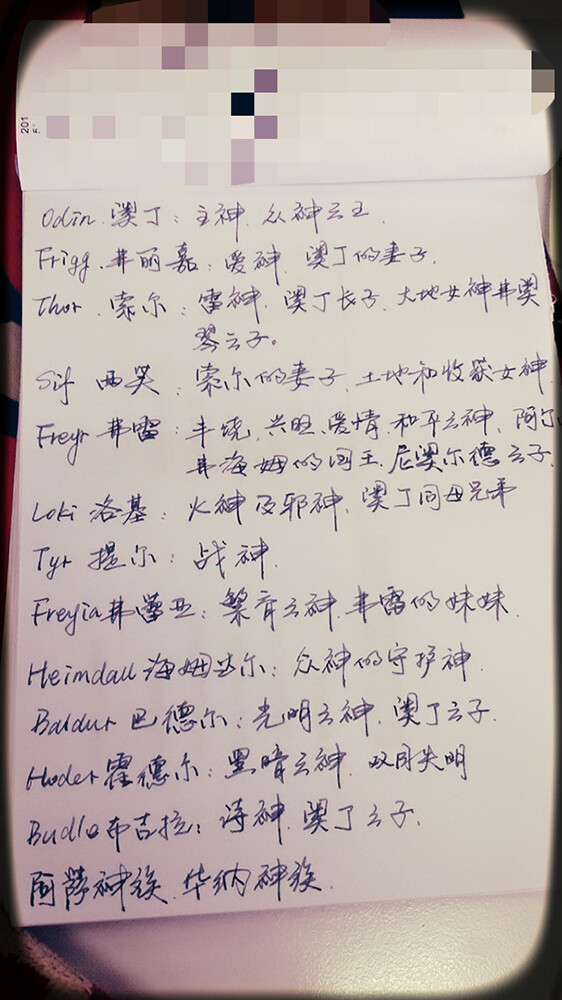 201
5.
Odin 奥丁：主神，众神之王.
Frigg. 弗丽嘉：爱神，奥丁的妻子.
Thor. 索尔：雷神，奥丁长子，大地女神弗奥
琴之子。
Sif 西芙：索尔的妻子，土地和收获女神
Freyr 弗雷：丰饶、兴旺、爱情、和平之神，阿尔
弗海姆的国王，尼奥尔德之子.
Loki 洛基：火神及邪神，奥丁同母兄弟
Tyr 提尔：战神.
Freyia 弗蕾亚：繁育之神，弗雷的妹妹.
Heimdall 海姆达尔：众神的守护神.
Baldur 巴德尔：光明之神，奥丁之子.
Hoder 霍德尔：黑暗之神，双目失明
Budlo 布吉拉：诗神，奥丁之子.
阿萨神族、华纳神族.